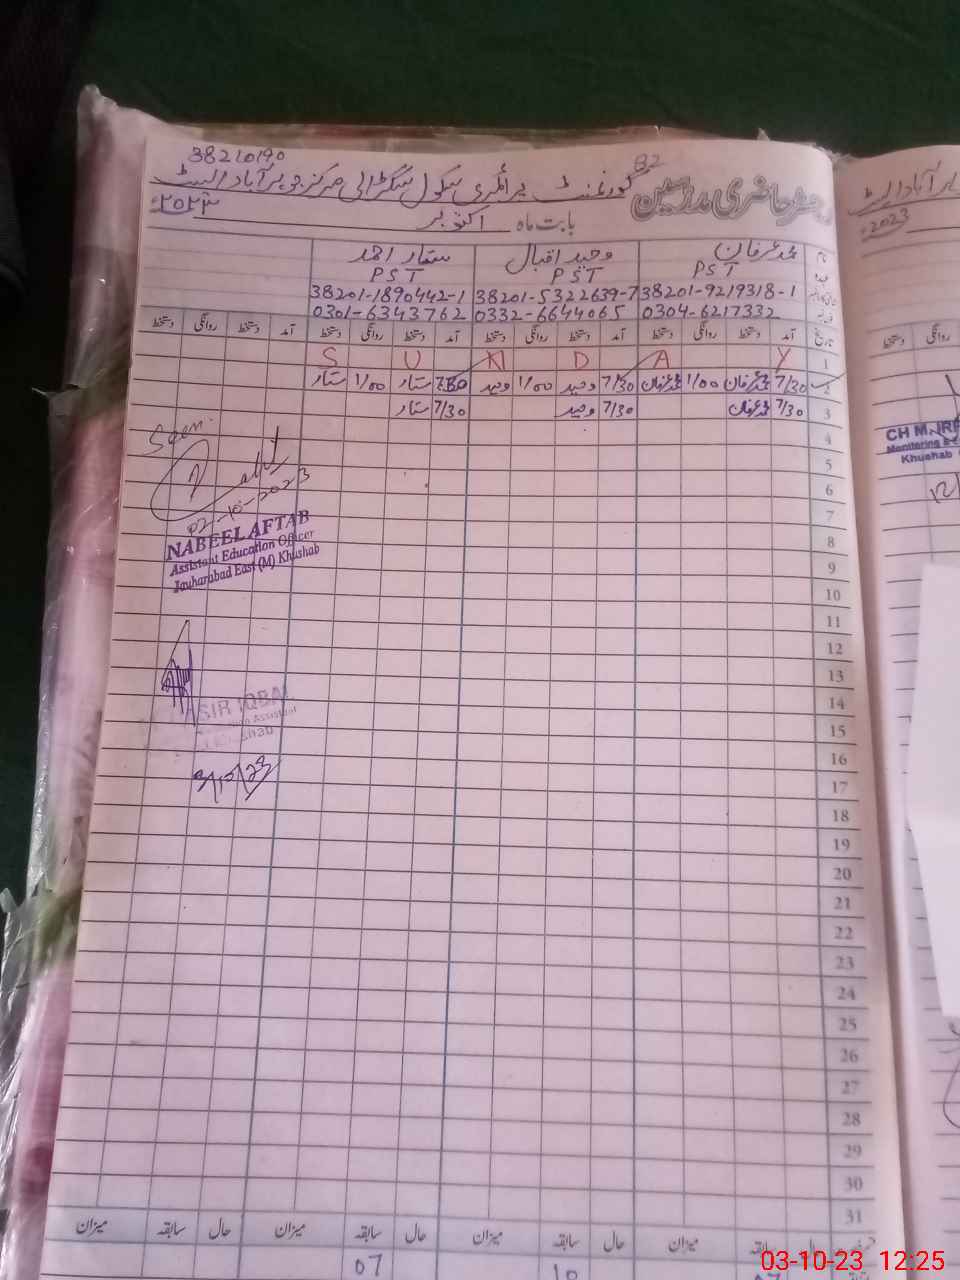 38210190
82
رجسٹر حاضری مدرسین گورنمنٹ پرائمری سکول سنگڑالی مرکز جوہرآباد ایسٹ
بابت ماہ اکتوبر ۲۰۲۳ء
نام محمد عرفان وحید اقبال ستار احمد
عہدہ PST PST PST
38201-9219318-1 38201-5322639-7 38201-1890442-1
0304-6217332 0332-6644065 0301-6343762
تاریخ آمد دستخط روانگی دستخط آمد دستخط روانگی دستخط آمد دستخط روانگی دستخط آمد دستخط روانگی دستخط
1 S U N D A Y
2 7/30 محمد عرفان 1/00 محمد عرفان 7/30 وحید 1/00 وحید 7:30 ستار 1/00 ستار
3 7/30 محمد عرفان 7/30 وحید 7/30 ستار
4
5
6
7
8
9
10
11
12
13
14
15
16
17
18
19
20
21
22
23
24
25
26
27
28
29
30
31
Seen
02-10-2023
NABEEL AFTAB
Assistant Education Officer
Jauharabad East (M) Khushab
SIR IQBAL
Assistant
3/10/23
حال سابقہ میزان حال سابقہ میزان حال سابقہ میزان
07 10 07
2023
روانگی دستخط
CH M. IRF
Monitoring &
Khushab
12/
03-10-23 12:25